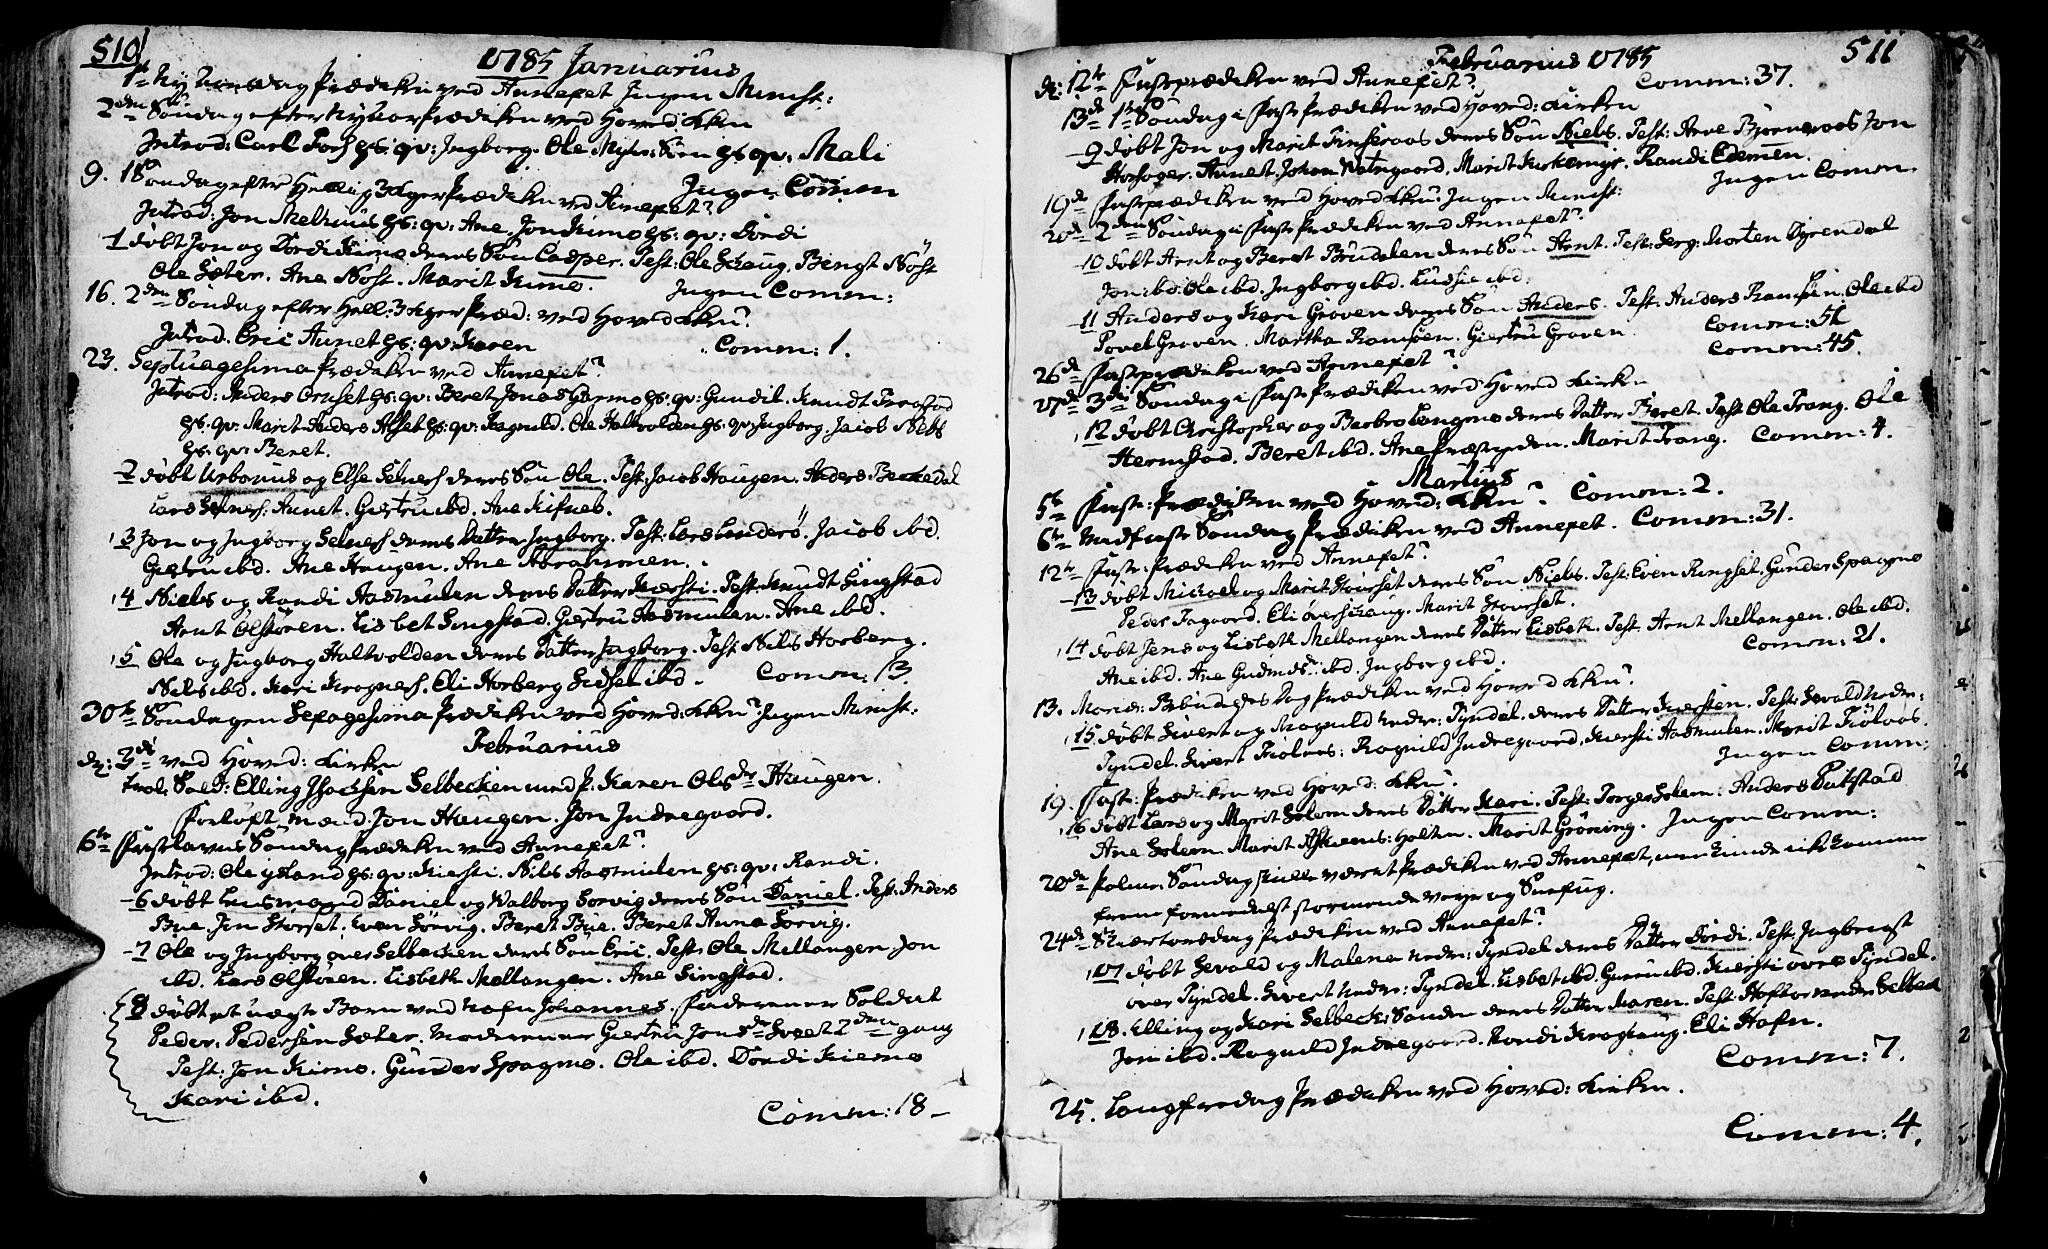 510
1785 Januarius
1te Ny Aarsdag Prædiken ved Annexet Ingen Minist:
2den Söndag efter Nÿt Aar Prædiken ved Hoved Kken
Introd: Carl gs: qv: Ingborg. Ole gs qv: Mali
Ingen Comm
9. 1 Söndag efter Hellig 3 Kger Prædiken ved Annexet?
Introd: Jon Melhuus gs: qv: Ane. Jon Kimo gs: qv: Dordi
1 döbt Jon og Dordi Kimo deres Sön Casper. Test: Ole Schaug. Bengt Nöst
Ole Sæter. Ane Nöst. Marit Kimo.
Ingen Comm:
16. 2den Söndag efter Hell: 3 Kger Præd: ved Hoved Kken?
Introd. Eric Aunet gs: qv: Karen
Comm: 1.
23. Septuagesima Prædiken ved Annexet?
Introd: Anders gs: qv: Beret. Jonas Garmo gs: qv: Gundil. Knudt
gs. qv: Marit. Anders gs: qv: Ragnild. Ole Haltvolden gs: qv: Ingborg. Jacob
gs: qv: Beret.
2 döbt Urbanus og Else Selnes deres Sön Ole. Test: Jacob Haugen. Anders
Lars Selnes. Aunet. Giertru ibd. Ane
3 Jon og Ingborg Selnes deres Datter Ingborg. Test: Lars Linderö. Jacob ibd.
Giertru ibd. Ane Haugen. Ane Abrahmoen.
4 Niels og Randi Aasmulen deres Datter Kiersti. Test: Knudt Singstad
Arnt Olstören. Lisbet Singstad. Giertru Aasmulen. Ane ibd.
5 Ole og Ingborg Haltvolden deres Datter Ingborg. Test: Nils Horberg.
Nils ibd. Kari Krognes. Eli Horberg Sidsel ibd.
Comm: 13.
30te Söndagen Sexagesima Prædiken ved Hoved: Kken? Ingen Minist:
Februarius
d: 3di ved Hoved: Kirken
Sold: Elling Selbecken med P. Karen Olsdr Haugen.
Forlöft. Mænd. Jon Haugen. Jon Indregaard.
6te Fastelavns Söndag Prædiken ved Annexet?
Introd: Ole gs: qv: Kiersti. Nils Aasmulen gs: qv: Randi.
6 döbt Huusmand Daniel og Walborg Sorvig deres Sön Daniel. Test: Anders
Bue. Jon Storset. Even Sörvig. Beret Bue. Beret Anna Sorvig.
7 Ole og Ingborg over Selbecken deres Sön Eric. Test: Ole Mellangen. Jon
ibd. Lars Olstören. Lisbeth Mellangen. Ane Singstad.
8 döbt et uægte Barn ved nafn Johannes. Faderen er Soldat
Peder. Pedersen Sæter. Moderen er Giertru Jonsdr 2den gang
Test: Jon Kimo. Gunder Spagmo. Ole ibd. Dordi Kiemo
Kari ibd.
Comm: 18
Februarius 1785
511
d: 12te Fasteprædiken ved Annexet?
Comm: 37.
13de 1te Söndag i Faste Prædiken ved Hoved: Kirken
9 döbt Jon og Marit deres Sön Niels. Test: Arve Jon
Aunet. Johan. Marit Kirkemyr. Randi
Ingen Comm.
19de Fasteprædiken ved Hoved Kken? Ingen Minist:
20de 2den Söndag i Faste Prædiken ved Annexet?
10 döbt Arnt og Beret Brudalen deres Sön Arnt. Test: Serg. Morten Dyrendal
Jon ibd. Ole ibd. Ingborg ibd. Ludsie ibd.
11 Anders og Kari Groven deres Sön Anders. Test: Anders Ramsöen. Ole ibd
Povel Groven. Martha Ramsöen. Giertru Groven.
Comm: 51
26de Fasteprædiken ved Annexet?
Comm: 45.
27de 3die Söndag i Faste Prædiken ved Hoved Kirken
12 döbt Christopher og Barbro Langmo deres Datter Beret. Test. Ole Trang. Ole
Hermstad. Beret ibd. Ane. Marit Trang.
Comm: 4.
Martius
5te Faste: Prædiken ved Hoved: Kken?
Comm: 2.
6te Midfaste Söndag Prædiken ved Annexet.
Comm: 31.
12te Faste: Prædiken ved Annexet?
13 döbt Mickel og Marit Storset deres Sön Niels. Test: Even Ringset. Gunder Spagmo
Peder. Eli överschaug. Marit Storset.
14 döbt Jens og Lisbeth Mellangen deres Datter Lisbeth. Test. Arnt Mellangen. Ole ibd.
Ane ibd. Ane ibd. Ingborg ibd.
Comm: 21.
13. Mariæ: Bebudelses Dag Prædiken ved Hoved Kken?.
15 döbt Sivert og Magnild nedre: Tyndel. deres Datter Kiersten. Test: Sevald nedre:
Tyndel. Sivert. Ragnild Indregaard. Kiersti Aasmulen. Marit
Ingen Comm:
19. Faste: Prædiken ved Hoved: Kken?.
16 döbt Lars og Marit Solem deres Datter Kari. Test: Torger Solem. Anders
Ane Solem. Marit. Marit Gröning.
Ingen Comm:
20de Palme: Söndag skulle været Prædiken ved Annexet, men kunde ikke komme
frem formedelst stormende veyr og Sneefug.
24de Skiærtorsdag Prædiken ved Annexet?
17 döbt Sevald og Malene nedre: Tyndel deres Datter Dordi. Test: Ingbrigt
over Tyndel. Sivert nedre: Tyndel. Lisbet ibd. Guru ibd. Kiersti övre Tyndel.
18. Elling og Kari Selbeck: Sanden deres Datter Maren. Test: nedre Selbeck
Jon ibd. Ragnild Indregaard. Randi. Eli Hofn.
Comm: 7.
25. Langfredag Prædiken ved Hoved: Kirken.
Comm: 4.